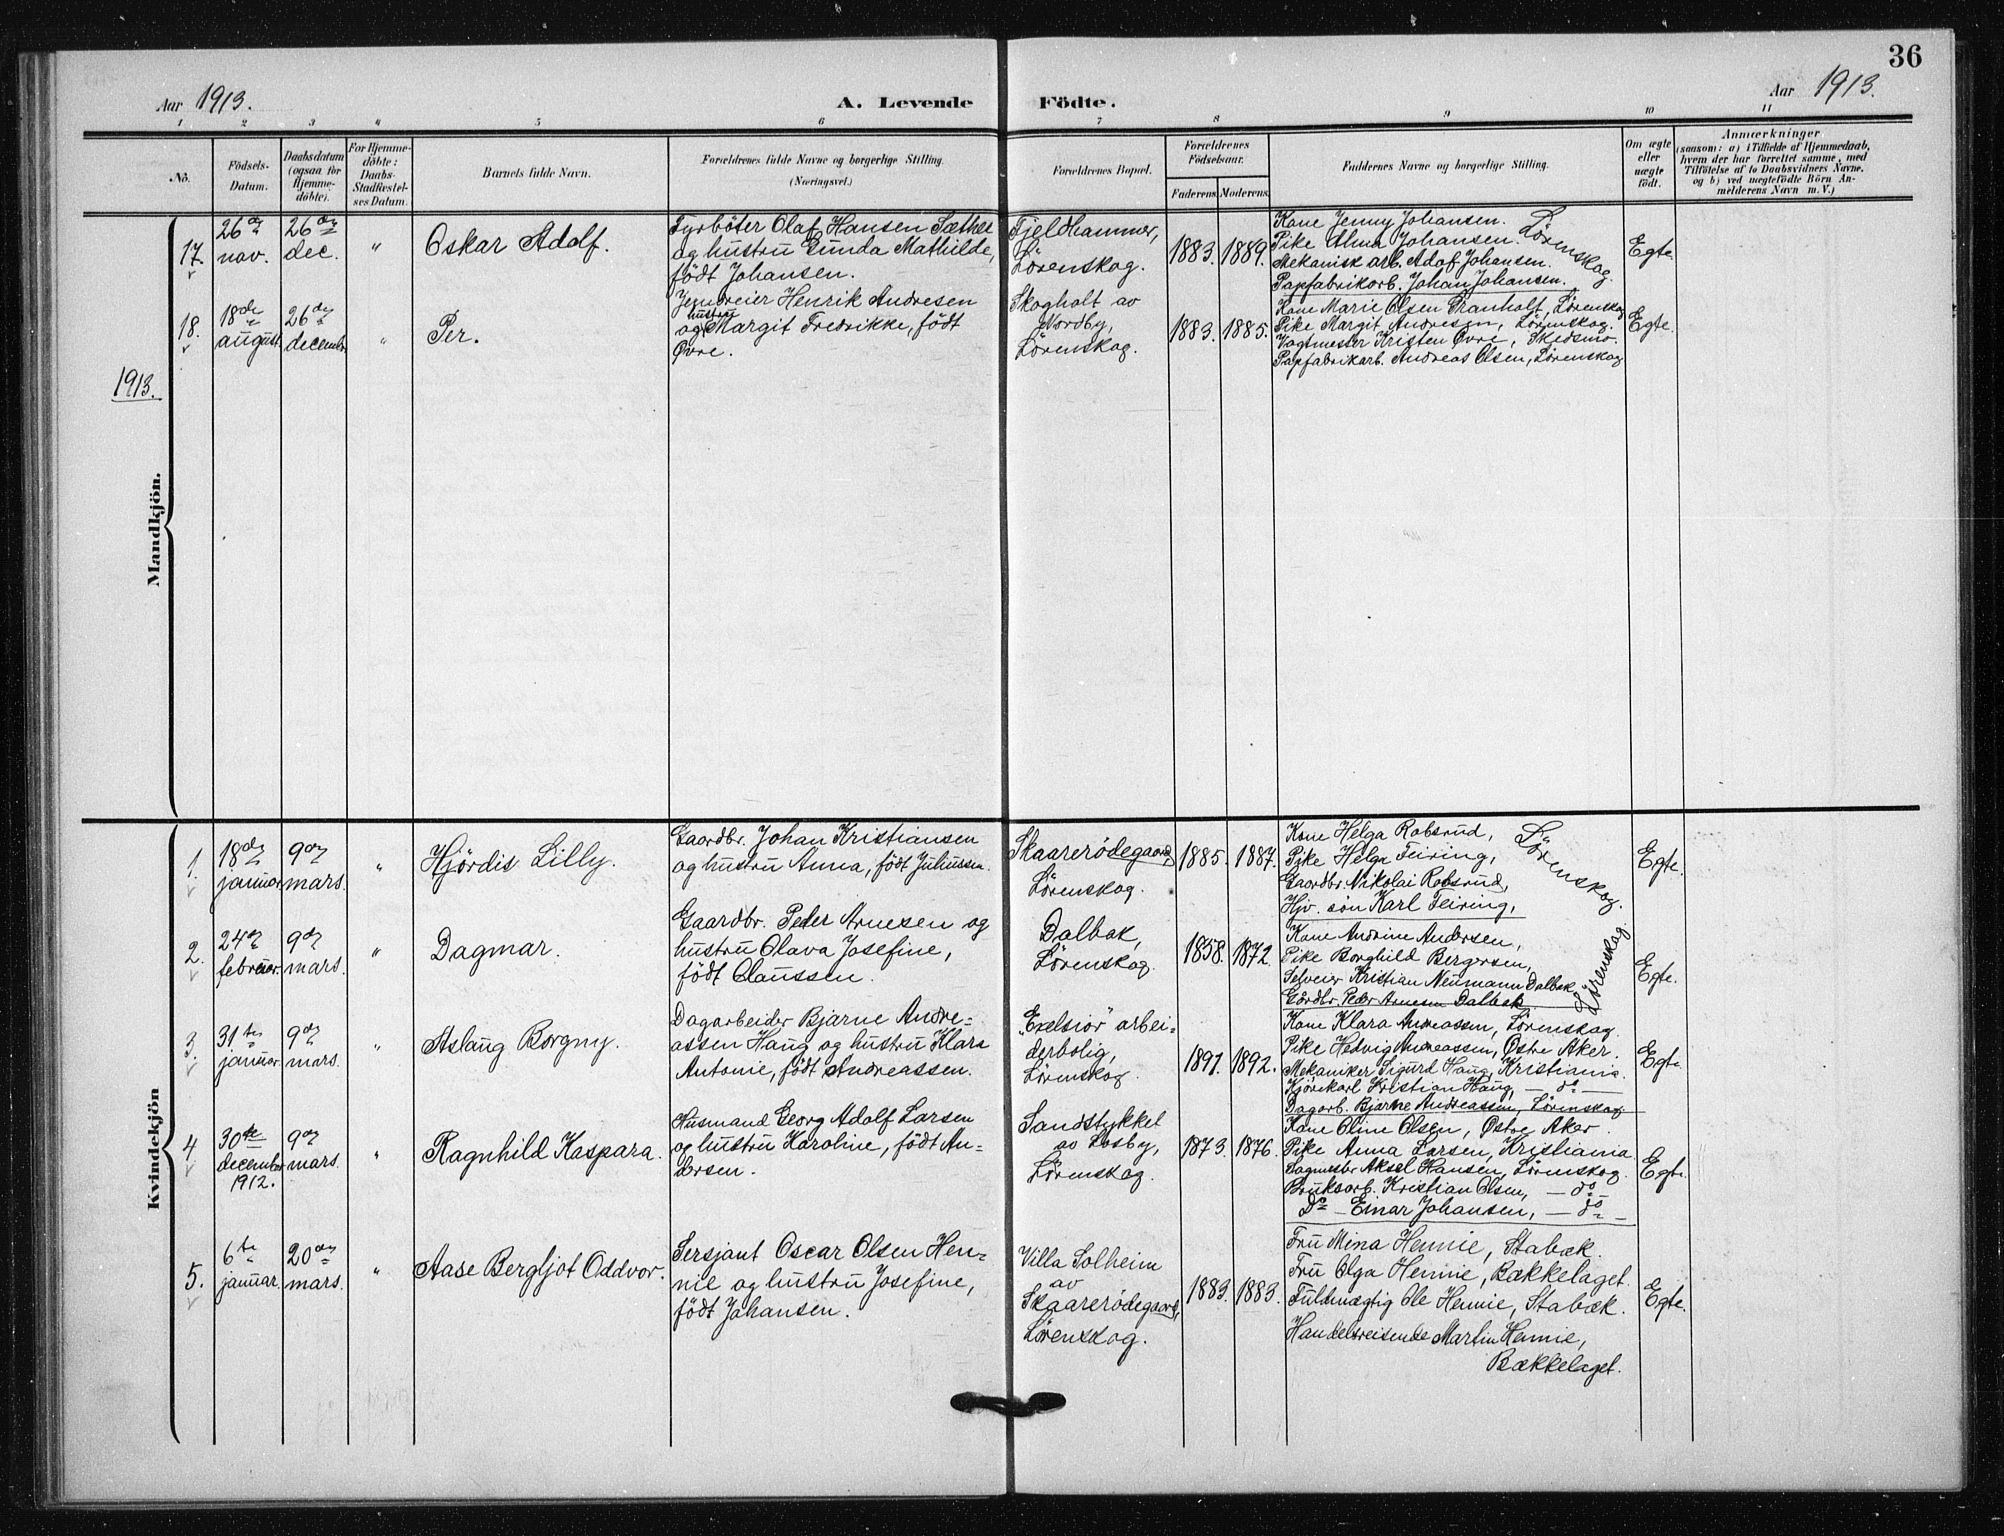 36
Aar 1913.
A. Levende Födte.
Aar 1913.
1 2 3 4 5 6 7 8 9 10 11
No.
Födsels-
Datum.
Daabsdatum
(ogsaa for
Hjemme-
döbte).
For Hjemme-
döbte:
Daabs-
Stadfæstel-
ses Datum.
Barnets fulde Navn.
Forældrenes fulde Navne og borgerlige Stilling.
(Næringsvei.)
Forældrenes Bopæl.
Forældrenes
Födselsaar.
Faderens. Moderens.
Faddernes Navne og borgerlige Stilling.
Om ægte
eller
uægte
født.
Anmærkninger
(saasom: a) i Tilfælde af Hjemmedaab,
hvem der har forrettet samme, med
Tilföielse af to Daabsvidners Navne,
og b) ved uægtefödte Börn An-
melderens Navn m. V.)
1913.
Mandkjön.
17.
26de
nov.
26de
dec.
"
Oskar Adolf.
Fyrböter Olaf Hansen Sæther
og hustru Gunda Mathilde,
födt Johansen.
Fjeldhammer,
Lörenskog.
1883. 1889.
Kone Jenny Johansen.
Pike Alma Johansen.
Mekanisk arb. Adof Johansen.
Papfabrikarb. Johan Johansen.
Lörenskog.
Egte.
18.
18de
august
26de
decembr
"
Per.
Jernvreier Henrik Andresen
hustru
og Margit Fredrikke, födt
Øvre.
Skogholt av
Nordby,
Lörenskog.
1883. 1885.
Kone Marie Olsen Granholt, Lörenskog
Pike Margit Andresen, Lörenskog.
Vagtmester Kristen Øvre, Skedsmo.
Papfabrikarb. Andreas Olsen, Lörenskog
Egte.
Kvindekjön
1.
18de
januar.
9de
mars.
"
Hjördis Lilly.
Gaardbr. Johan Kristiansen
og hustru Anna, födt Juliussen.
Skaarerödegaard,
Lörenskog.
1885. 1887.
Kone Helga Robsrud,
Pike Helga Feiring,
Gaardbr. Nikolai Robsrud,
Hjv. sön Karl Feiring,
Lörenskog.
Egte.
2.
24de
februar.
9de
mars.
"
Dagmar.
Gaardbr. Peder Arnesen og
hustru Olava Josefine,
födt Claussen.
Dalbak,
Lörenskog.
1858. 1872.
Kone Andrine Andersen,
Pike Borghild Bergersen,
Selveier Kristian Neumann Dalbak
Gårdbr. Peder Arnesen Dalbak
Lörenskog
Egte.
3.
31te
januar.
9de
mars.
"
Aslaug Borgny.
Dagarbeider Bjarne Andre-
assen Haug og hustru Klara
Antonie, födt Andreassen.
"Exelsior" arbei-
derbolig,
Lörenskog.
1891. 1892.
Kone Klara Andreassen, Lörenskog.
Pike Hedvig Andreassen, Østre Aker.
Mekaniker Sigurd Haug, Kristiania.
Kjörekarl Kristian Haug, – do –
Dagarb. Bjarne Andreassen, Lörenskog.
Egte.
4
30te
december
1912.
9de
mars.
"
Ragnhild Kaspara.
Husmand Georg Adolf Larsen
og hustru Karoline, födt An-
dersen.
Sandstykket
av Losby,
Lörenskog.
1873. 1876.
Kone Oline Olsen, Østre Aker.
Pike Anna Larsen, Kristiania
Sagmester Aksel Hansen, Lörenskog.
Bruksarb. Kristian Olsen, – do –
Do – Einar Johansen, – do –
Egte.
5.
6te
januar.
20de
mars.
"
Aase Bergljot Oddvor.
Sersjant Oscar Olsen Hen-
nie og hustru Josefine,
födt Johansen.
Villa Solheim
av
Skaarerödegaard,
Lörenskog.
1883. 1883.
Fru Mina Hennie, Stabæk.
Fru Olga Hennie, Bækkelaget.
Fuldmægtig Ole Hennie, Stabæk.
Handelsreisende Martin Hennie,
Bækkelaget.
Egte.